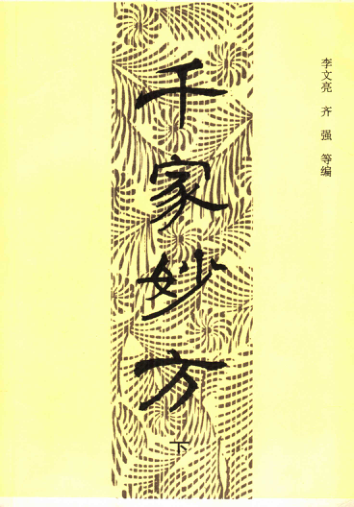 李文亮 齐强 等编
千家妙方
下